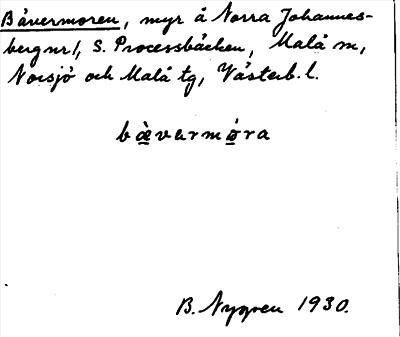 Bävermoren, myr å Norra Johannes-
berg nr 1, S. Processbäcken, Malå m,
Norsjö och Malå tg, Västerb. l.
bævermóra
B. Nygren 1930.